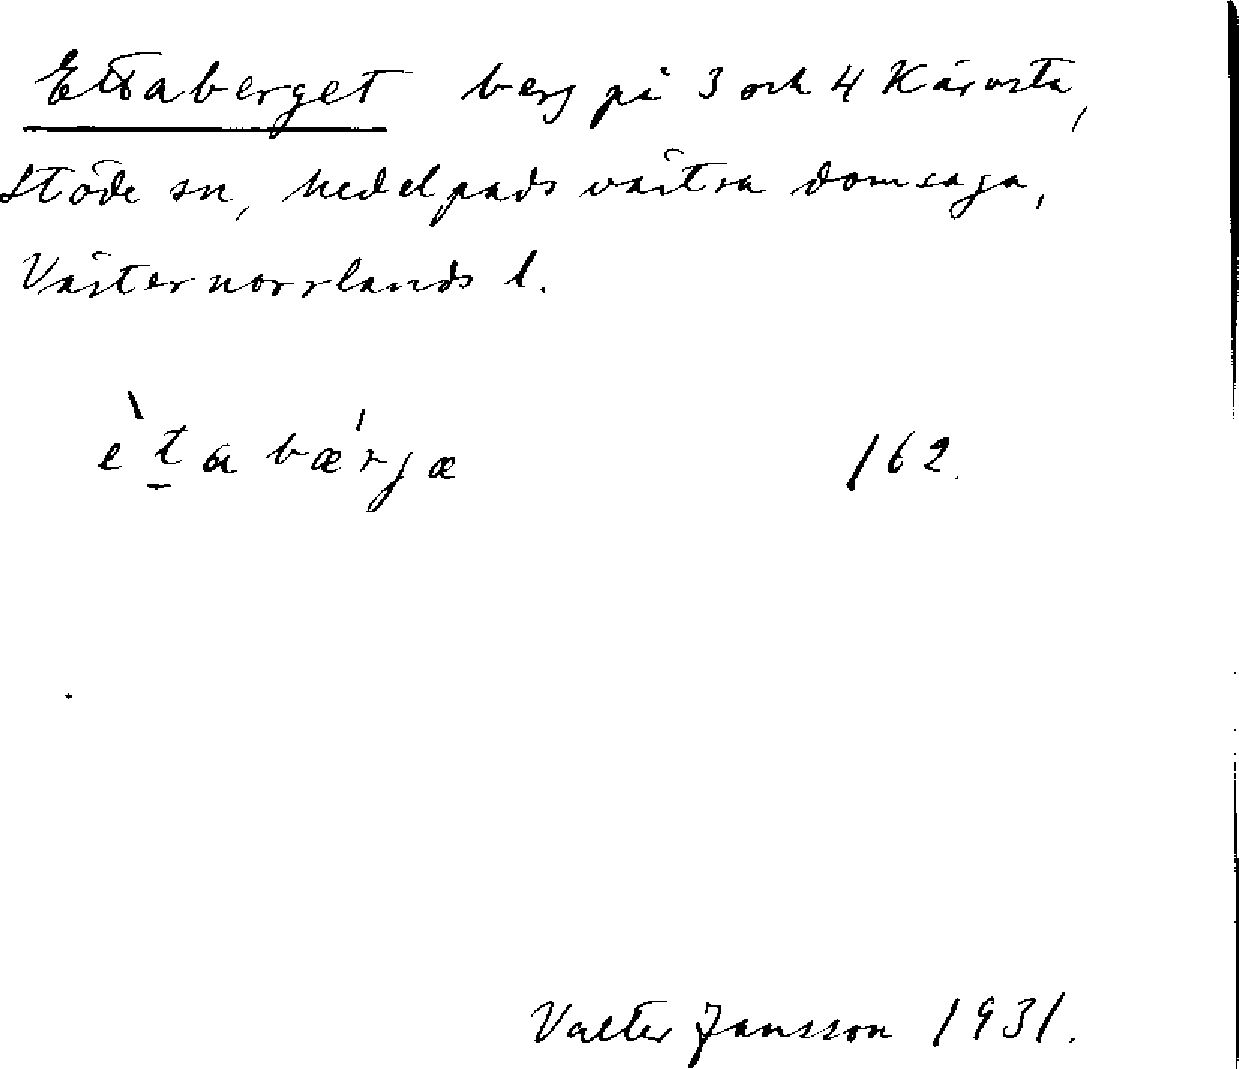 Ettaberget berg på 3 och 4 Kärvsta,
Stöde sn, Medelpads västra domsaga,
Västernorrlands l.
è t̠ a bǽrjæ 162.
Valter Jansson 1931.